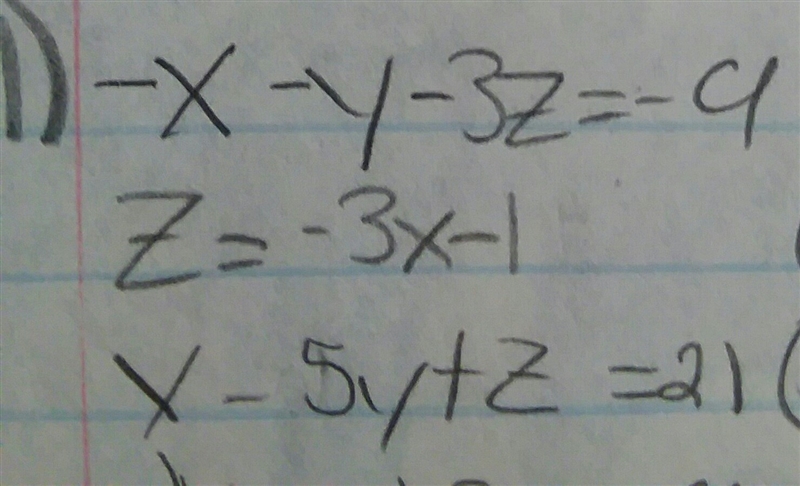 1) -x - y - 3z = -9
z = -3x - 1
x - 5y + z = 21 (